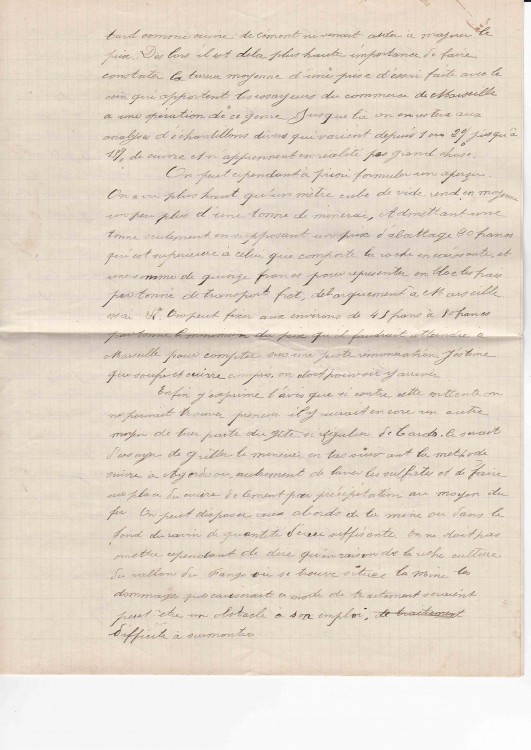 tard comme cuivre de cément ne venant aider à majorer le
prix. Dès lors il est de la plus haute importance de faire
constater la teneur moyenne d'une prise d'essai faite avec le
soin qui apportent les essayeurs du commerce de Marseille
à une opération de ce genre. Jusque là on en restera aux
analyses d'échantillons divers qui varient depuis 1 ou 2% jusqu'à
17% de cuivre et n'apprennent en réalité pas grand chose.
On peut cependant à priori formuler un aperçu.
On a vu plus haut qu'un mètre cube de vide rend en moyenne
un peu plus d'une tonne de minerai, Admettant une
tonne seulement en supposant un prix d'abattage 20 francs
qui est supérieure à celui que comporte la roche encaissante, et
une somme de quinze francs pour représenter en bloc les frais
par tonne de transport, fret, débarquement à Marseille
essai &. On peut fixer aux environs de 45 francs à 50 francs
par tonne le minimum du prix qu'il faudrait atteindre à
Marseille pour compter sur une juste rémunération. J'estime
que soufre et cuivre compris on doit pouvoir y arriver.
Enfin j'exprime l'avis que si contre cette attente on
ne pouvait trouver preneur il y aurait encore un autre
moyen de tirer parti du gîte si régulier de Cardo. Ce serait
d'essayer de griller le minerai en tas suivant la méthode
suivie à autrement de laver les sulfates et de faire
sur place du cuivre de cément par précipitation au moyen du
fer. On peut disposer aux abords de la mine ou dans le
fond du ravin de quantité d'eau suffisante on ne doit pas
omettre cependant de dire qu'en raison de la riche culture
du vallon du Fango où se trouve située la mine les
dommages que causerait ce mode de traitement seraient
peut être un obstacle à son emploi, de traitement
difficile à surmonter